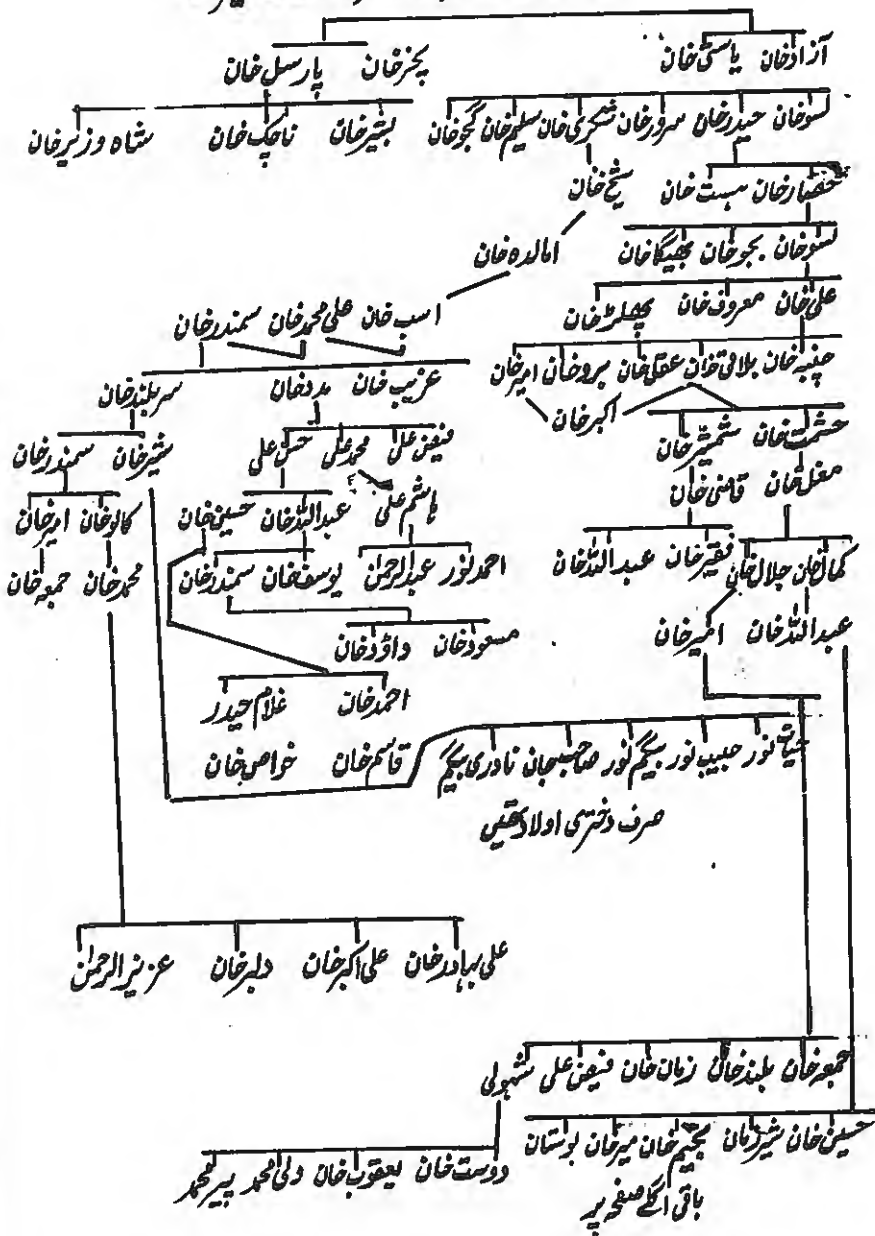 آزاد خان یاستی خان پجز خان پارسل خان
لسو خان حیدر خان سرور خان شکری خان سلیم خان گجو خان بشیر خان ناچک خان شاہ وزیر خان
حصار خان مست خان شیخ خان
لسو خان بجو خان بھیگا خان امالدہ خان
علی خان معروف خان پھلڑ خان اسب خان علی محمد خان سمندر خان
چنبہ خان بلاقی خان عقل خان بیرو خان امیر خان غریب خان مدد خان سربلند خان
حشمت خان شمشیر خان اکبر خان فیض علی محمد علی حسن علی شیر خان سمندر خان
مغل خان قاضی خان ہاشم علی عبداللہ خان حسین خان کالو خان امیر خان
کمال خان جلال خان فقیر خان عبداللہ خان احمد نور عبدالرحمٰن یوسف خان سمندر خان محمد خان جمعہ خان
عبداللہ خان امیر خان مسعود خان داؤد خان
احمد خان غلام حیدر
حیات نور حبیب نور بیگم نور صاحب جان نادری بیگم قاسم خان خواص خان
صرف دختری اولاد تھیں
علی بہادر خان علی اکبر خان دلبر خان عزیز الرحمٰن
جمعہ خان بلند خان زمان خان فیض علی شہولی
حسین خان شیر زمان میر خان بوستان دوست خان یعقوب خان ولی محمد پیر محمد
باقی اگلے صفحہ پر